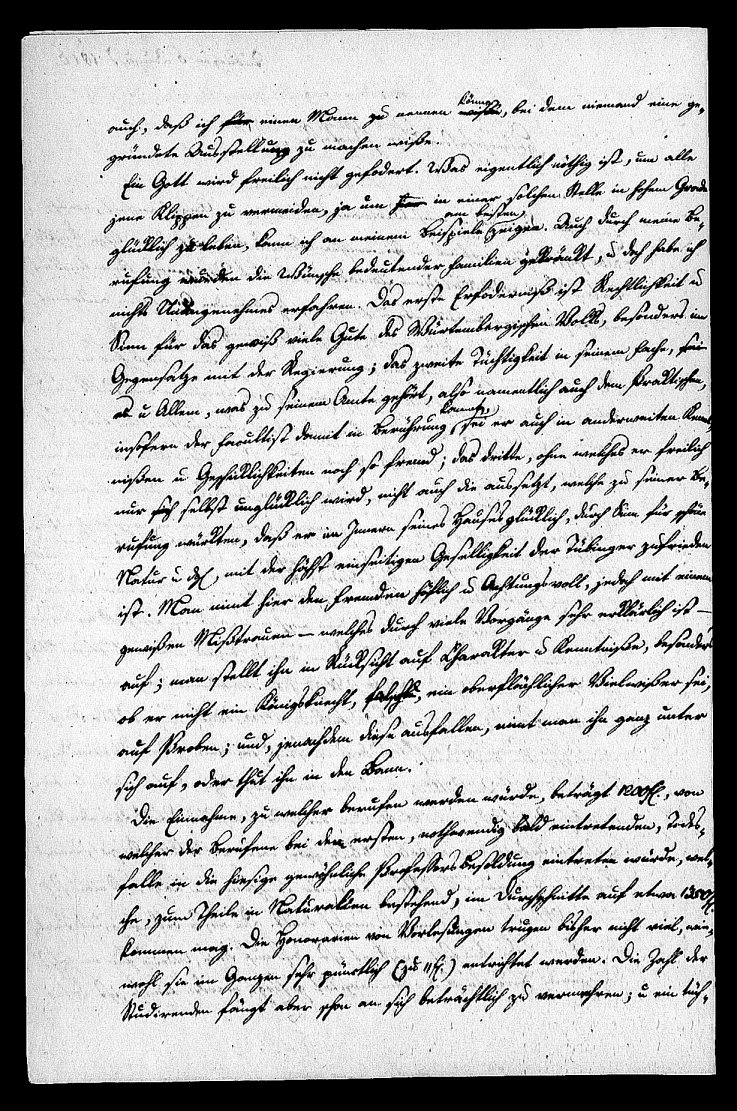 auch, daß ich einen Mann zu nennen könne, bei dem niemand eine ge-
gründete Ausstellung zu machen wiße.
Ein Gott wird freilich nicht gefodert. Was eigentlich nöthig ist, um alle
jene Klippen zu vermeiden, ja um in einer solchen Stelle in hohem Grade
glücklich zu leben, kann ich an meinem Beispiele am besten zeigen. Auch durch meine Be-
rufung wurden die Wünsche bedeutender Familien gekränkt, u doch habe ich
nichts Unangenehmes erfahren. Das erste Erfoderniß ist Rechtlichkeit u
Sinn für das gewiß viele Gute des Würtembergischen Volks, besonders im
Gegensatze mit der Regierung; das zweite Tüchtigkeit in seinem Fache,
u Allem, was zu seinem Amte gehört, also namentlich auch dem Praktischen,
insofern der Facultist damit in Berührung kommt, sei er auch in anderweiten Kennt-
nißen u Geschicklichkeiten noch so fremd; das dritte, ohne welches er freilich
nur sich selbst unglücklich wird, nicht auch die aussetzt, welche zu seiner Be-
rufung würkten, daß er im Innern seines Hauses glücklich, durch Sinn für schöne
Natur u dgl. mit der höchst einseitigen Geselligkeit der Tübinger zufrieden
ist. Man nimt hier den Fremden höflich u Achtungsvoll, jedoch mit einem
gewißen Mißtrauen – welches durch viele Vorgänge sehr erklärlich ist –
auf; man stellt ihn in Rücksicht auf Charakter u Kenntniße, besonders
ob er nicht ein Königsknecht, ein oberflächlicher Vielwißer sei,
auf Proben; und, jenachdem diese ausfallen, nimt man ihn ganz unter
sich auf, oder thut ihn in den Bann.
Die Einnahme, zu welcher berufen werden würde, beträgt 1200 fl., von
welcher der Berufene bei dem ersten, nothwendig bald eintretenden, Todes-
falle in die hiesige gewöhnliche Professorsbesoldung eintreten würde, wel-
che, zum Theile in Naturalien bestehend, im Durchschnitte auf etwa 1350 fl.
kommen mag. Die Honorarien von Vorlesungen trugen bisher nicht viel, wie-
wohl sie im Ganzen sehr pünctlich (zu 11 fl.) entrichtet werden. Die Zahl der
Studirenden fängt aber schon an sich beträchtlich zu vermehren; u ein tüch-